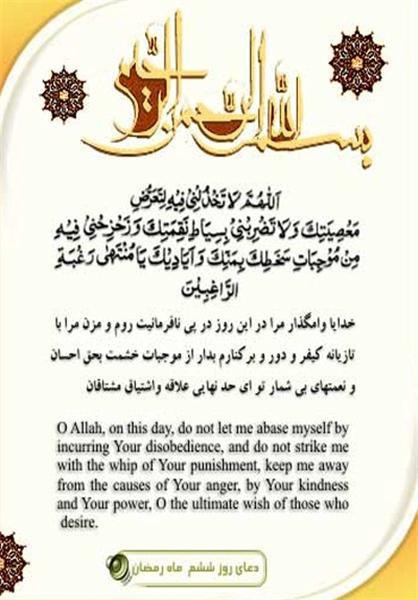 بسم الله الرحمن الرحیم
اَللّهُمَّ لا تَخْذُلْنی فیهِ لِتَعَرُّضِ
مَعْصِیَتِكَ وَلا تَضْرِبْنی بِسِیاطِ نَقِمَتِكَ وَزَحْزِحْنی فیهِ
مِنْ مُوجِباتِ سَخَطِكَ بِمَنِّكَ وَاَیادیكَ یا مُنْتَهی رَغْبَةِ
الرّاغِبینَ
خدایا وامگذار مرا در این روز در پی نافرمانیت روم و مزن مرا با
تازیانه کیفر و دور و برکنارم بدار از موجبات خشمت بحق احسان
و نعمتهای بی شمار تو ای حد نهایی علاقه واشتیاق مشتاقان
O Allah, on this day, do not let me abase myself by
incurring Your disobedience, and do not strike me
with the whip of Your punishment, keep me away
from the causes of Your anger, by Your kindness
and Your power, O the ultimate wish of those who
desire.
دعای روز ششم ماه رمضان